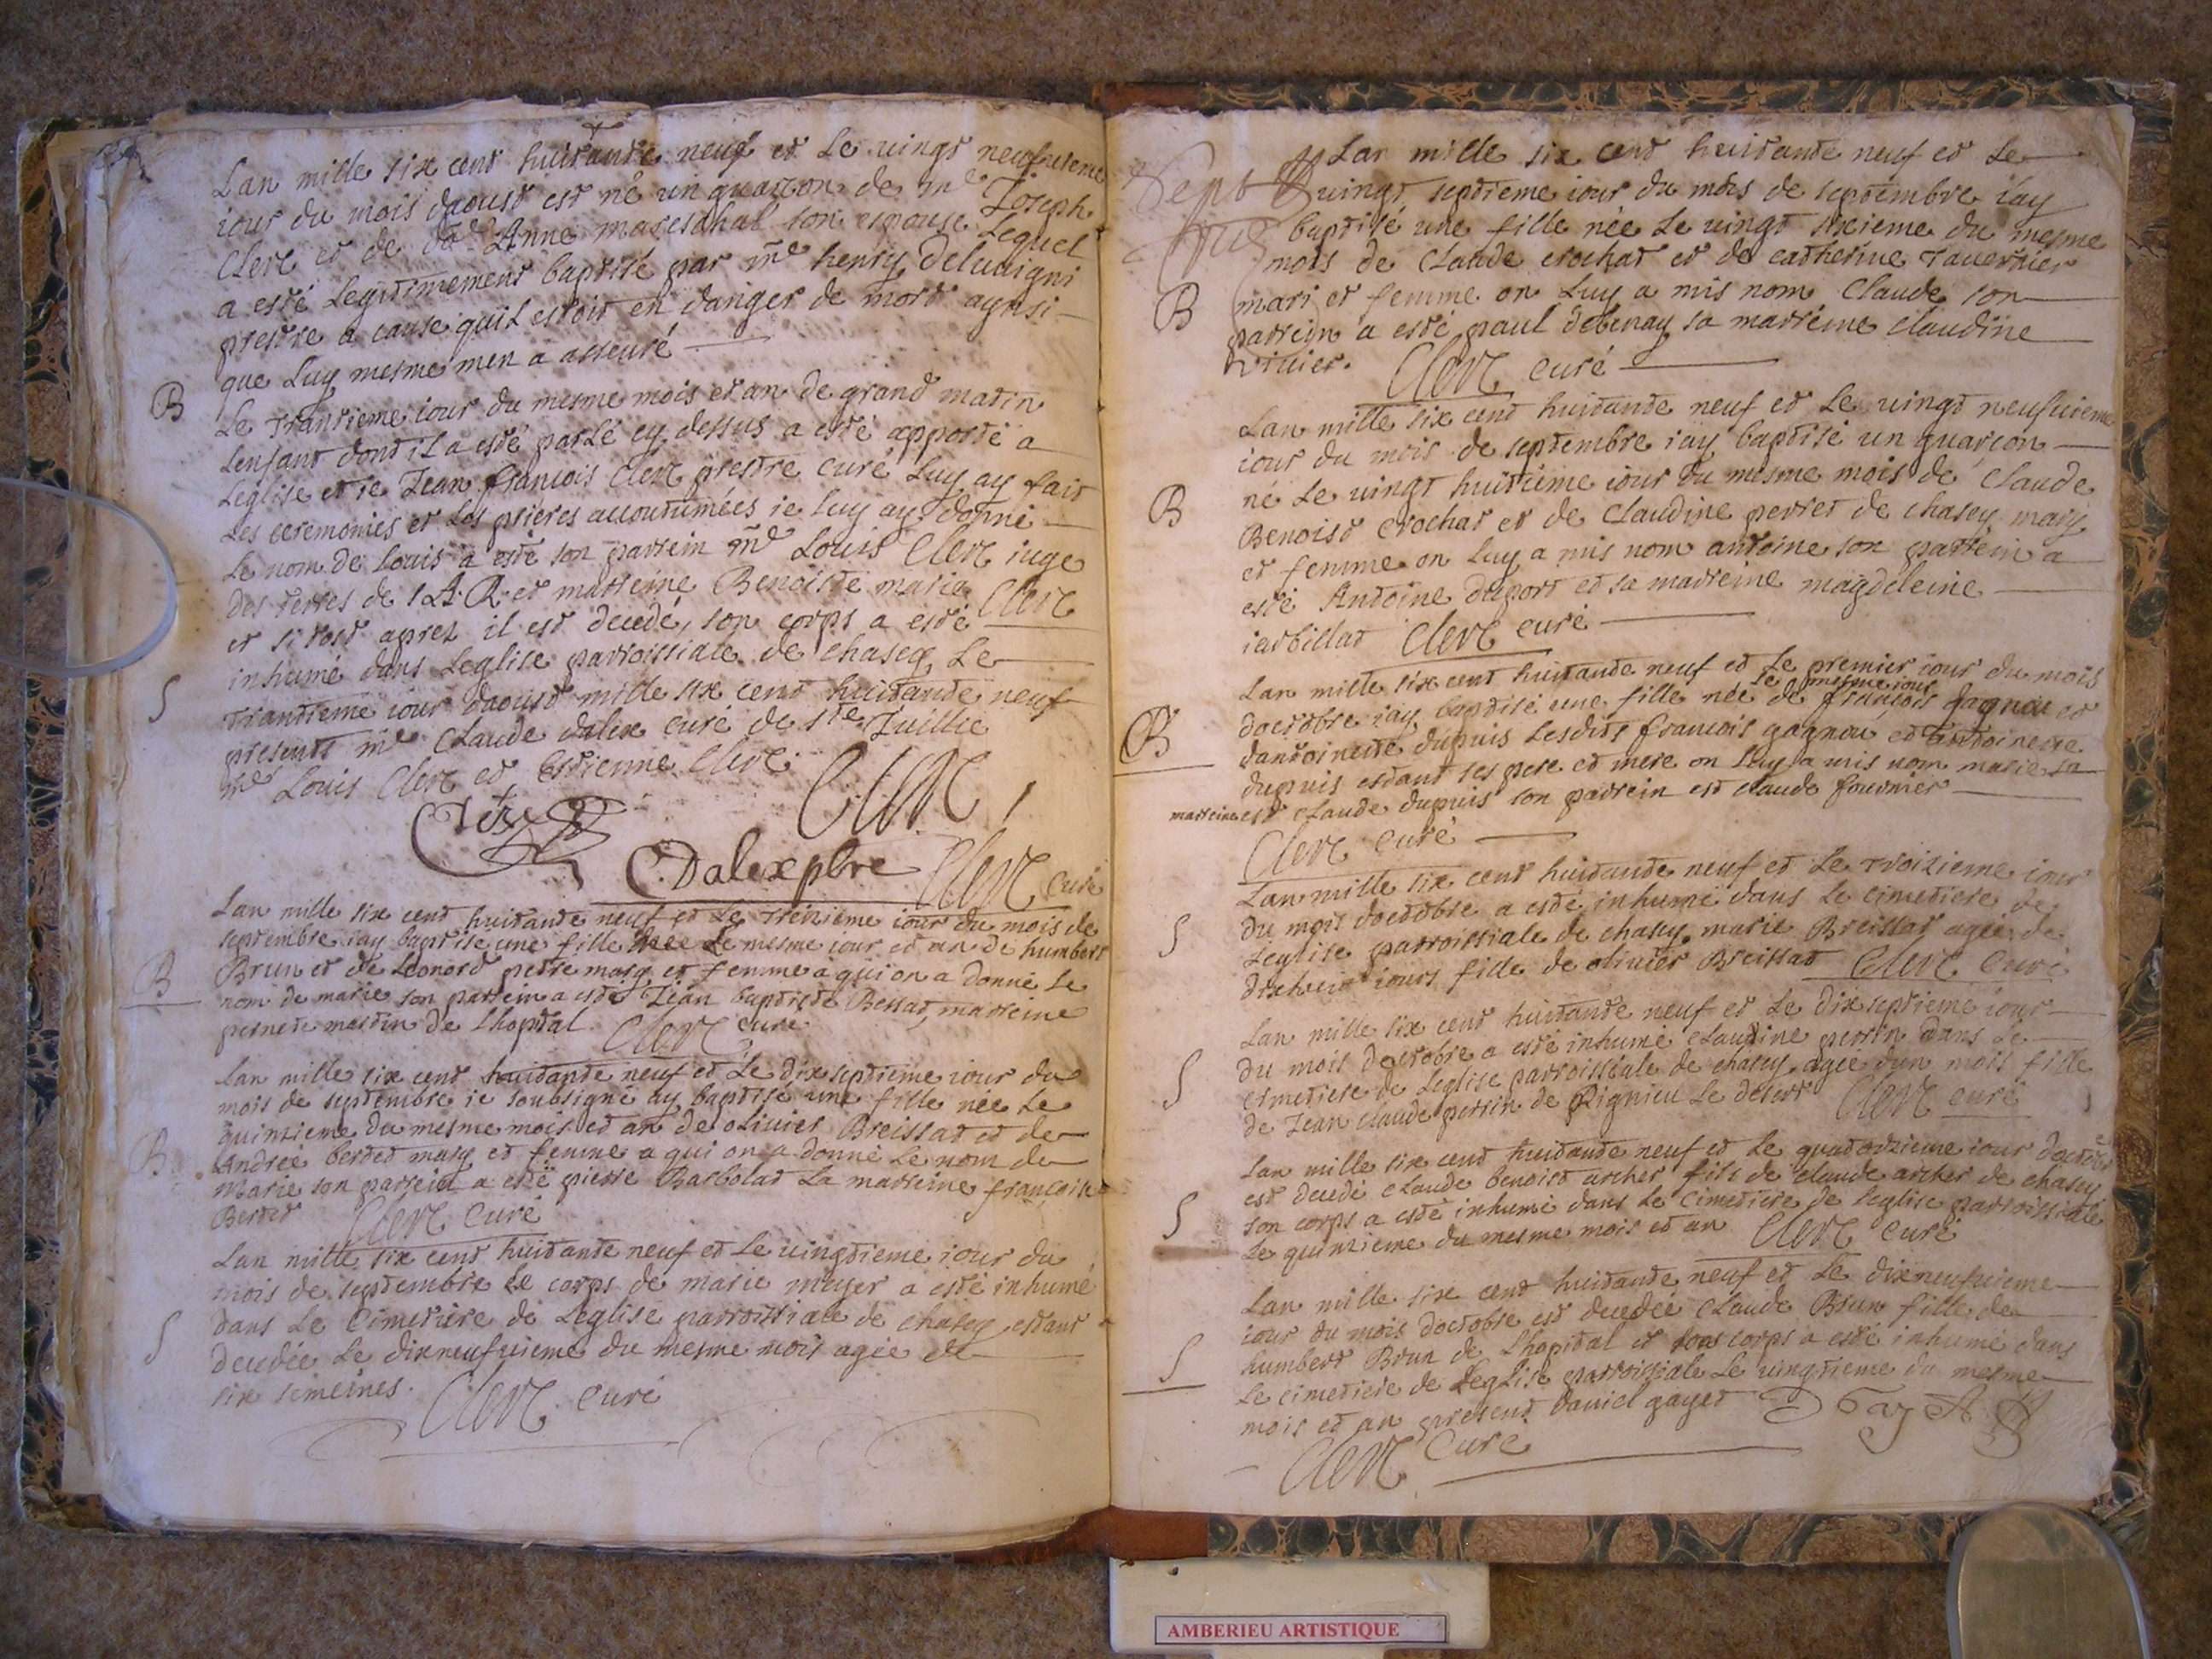 Lan mille six cent huitante neuf et le vingt neufvieme
iour du mois daoust est né un guarçon de me Joseph
Clerc et de de Anne mareschal son espouse Lequel
a esté Legitimement baptisé par me henry
prestre a cause quil estoit en danger de mort aynsi
que Luy mesme men a asseuré
B
Le trantieme iour du mesme mois et an de grand matin
Lenfant dont il a esté parlé cy dessus a esté apporté a
Leglise et ie Jean françois Clerc prestre curé Luy ay fait
Les ceremonies et les prieres accoutumées ie luy ay donné
Le nom de Louis a esté son parrein me Louis Clerc iuge
des terres de S.A.R. et marreine Benoiste marie Clerc
et si tost aprez il est decedé, son corps a esté
inhumé dans Leglise parroissiale de chasey Le
S
trantieme iour daoust mille six cent huitante neuf
presents me Claude dalex curé de Ste Juillie
me Louis Clerc et Estienne Clerc
Clerc
C. Dalex pbre Clerc Curé
Lan mille six cent huitante neuf et le treizieme iour du mois de
septembre iay baptisé une fille née le mesme iour et an de humbert
B
Brun et de Leonord petre mary et femme a qui on a donné le
nom de marie son parrein a esté Jean baptiste Bessat, marreine
pernete martin de Lhopital. Clerc curé
Lan mille six cent huitante neuf et Le dix septieme iour du
mois de septembre ie soubsigné ay baptisé une fille née Le
quinzieme du mesme mois et an de olivier Breissat et de
B
Andrée bertet mary et femme a qui on a donné Le nom de
Marie son parrein a esté pierre Barbolat La marreine françoise
Bertet Clerc Curé
Lan mille six cent huitante neuf et Le vingtieme iour du
mois de septembre le corps de marie muyer a esté inhumé
dans Le Cimetiere de Leglise parroissiale de chasey estant
S
decedée Le dixneufvieme du mesme mois agée de
six semeines. Clerc Curé
Lan mille six cent huitante neuf et Le
vingt septieme iour du mois de septembre iay
baptisé une fille née Le vingt sixieme du mesme
mois de Claude crochat et de catherine Tavernier
B
mari et femme on Luy a mis nom Claude son
parrein a esté paul debenay sa marreine Claudine
vivier. Clerc curé
Lan mille six cent huitante neuf et Le vingt neufvieme
iour du mois de septembre iay baptisé un guarçon
B
né Le vingt huitieme iour du mesme mois de Claude
Benoist Crochat et de Claudine perret de chasey mary
et femme on Luy a mis nom antoine son parrein a
esté Antoine duport et sa marreine magdeleine
iarbillat Clerc curé
Lan mille six cent huitante neuf et Le premier iour du mois
le mesme iour
doctobre iay baptisé une fille née de françois gagneu et
B
dantoinette dupuis Lesdits françois gagneu et antoinette
dupuis estant ses pere et mere on Luy a mis nom marie sa
marreine est Claude dupuis son parrein est claude fournier
Clerc curé
Lan mille six cent huitante neuf et Le troizieme iour
du mois doctobre a esté inhumé dans Le cimetiere de
S
Leglise parroissiale de chasey marie Breissat agée de
dixhuit iours fille de olivier Breissat Clerc Curé
Lan mille six cent huitante neuf et Le dix septieme iour
du mois doctobre a esté inhumé Claudine perrin dans Le
S
cimetiere de Leglise parroissiale de chasey agée dun mois fille
de Jean Claude perrin de Rignieu Le desert Clerc curé
Lan mille six cent huitante neuf et Le quatorzieme iour doctobre
est decedé Claude benoist archer fils de Claude archer de chasey
S
son corps a esté inhumé dans Le Cimetiere de leglise parroissiale
Le quinzieme du mesme mois et an Clerc Curé
Lan mille six cent huitante neuf et Le dixneufvieme
iour du mois doctobre est decedée Claude Brun fille de
S
humbert Brun de Lhopital et son corps a esté inhumé dans
Le cimetiere de Leglise parroissiale Le vingtieme du mesme
mois et an present daniel gayet D Gayet
Clerc Curé
AMBERIEU ARTISTIQUE